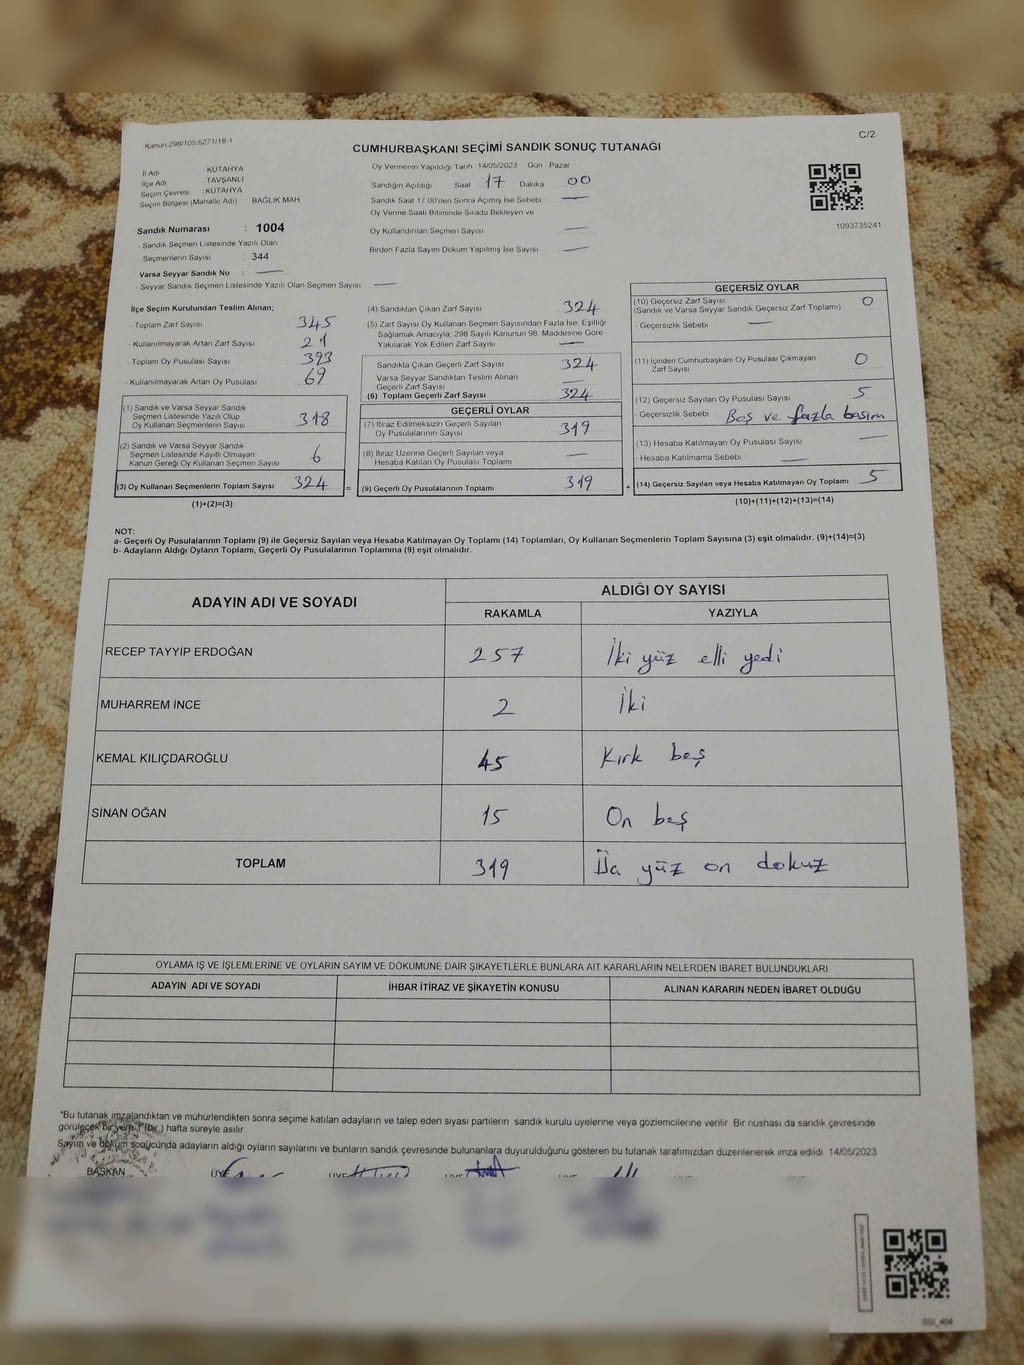 Kanun:298/105,6271/18-1
C/2
CUMHURBAŞKANI SEÇİMİ SANDIK SONUÇ TUTANAĞI
İl Adı KUTAHYA
İlçe Adı TAVŞANLI
Seçim Çevresi : KUTAHYA
Seçim Bölgesi (Mahalle Adı) BAĞLIK MAH
Sandık Numarası : 1004
- Sandık Seçmen Listesinde Yazılı Olan
Seçmenlerin Sayısı : 344
Varsa Seyyar Sandık No : —
- Seyyar Sandık Seçmen Listesinde Yazılı Olan Seçmen Sayısı —
Oy Vermenin Yapıldığı Tarih 14/05/2023 Gün Pazar
Sandığın Açıldığı Saat 17 Dakika 00
Sandık Saat 17:00'den Sonra Açımış İse Sebebi —
Oy Verme Saati Bitiminde Sırada Bekleyen ve
Oy Kullandırılan Seçmen Sayısı —
Birden Fazla Sayım Döküm Yapılmış İse Sayısı —
1093735241
İlçe Seçim Kurulundan Teslim Alınan;
- Toplam Zarf Sayısı 345
- Kullanılmayarak Artan Zarf Sayısı 21
- Toplam Oy Pusulası Sayısı 393
- Kullanılmayarak Artan Oy Pusulası 69
(1) Sandık ve Varsa Seyyar Sandık
Seçmen Listesinde Yazılı Olup
Oy Kullanan Seçmenlerin Sayısı 318
(2) Sandık ve Varsa Seyyar Sandık
Seçmen Listesinde Kayıtlı Olmayan
Kanun Gereği Oy Kullanan Seçmen Sayısı 6
(3) Oy Kullanan Seçmenlerin Toplam Sayısı 324 =
(1)+(2)=(3)
(4) Sandıktan Çıkan Zarf Sayısı 324
(5) Zarf Sayısı Oy Kullanan Seçmen Sayısından Fazla İse, Eşitliği
Sağlamak Amacıyla; 298 Sayılı Kanunun 98. Maddesine Göre
Yakılarak Yok Edilen Zarf Sayısı —
Sandıkta Çıkan Geçerli Zarf Sayısı 324
Varsa Seyyar Sandıktan Teslim Alınan
Geçerli Zarf Sayısı —
(6) Toplam Geçerli Zarf Sayısı 324
GEÇERLİ OYLAR
(7) İtiraz Edilmeksizin Geçerli Sayılan
Oy Pusulalarının Sayısı 319
(8) İtiraz Üzerine Geçerli Sayılan veya
Hesaba Katılan Oy Pusulası Toplamı —
(9) Geçerli Oy Pusulalarının Toplamı 319 +
GEÇERSİZ OYLAR
(10) Geçersiz Zarf Sayısı 0
(Sandık ve Varsa Seyyar Sandık Geçersiz Zarf Toplamı)
- Geçersizlik Sebebi —
(11) İçinden Cumhurbaşkanı Oy Pusulası Çıkmayan
Zarf Sayısı 0
(12) Geçersiz Sayılan Oy Pusulası Sayısı 5
- Geçersizlik Sebebi Boş ve fazla basım
(13) Hesaba Katılmayan Oy Pusulası Sayısı —
- Hesaba Katılmama Sebebi —
(14) Geçersiz Sayılan veya Hesaba Katılmayan Oy Toplamı 5
(10)+(11)+(12)+(13)=(14)
NOT:
a- Geçerli Oy Pusulalarının Toplamı (9) ile Geçersiz Sayılan veya Hesaba Katılmayan Oy Toplamı (14) Toplamları, Oy Kullanan Seçmenlerin Toplam Sayısına (3) eşit olmalıdır. (9)+(14)=(3)
b- Adayların Aldığı Oyların Toplamı, Geçerli Oy Pusulalarının Toplamına (9) eşit olmalıdır.
ADAYIN ADI VE SOYADI ALDIĞI OY SAYISI
RAKAMLA YAZIYLA
RECEP TAYYİP ERDOĞAN 257 İki yüz elli yedi
MUHARREM İNCE 2 İki
KEMAL KILIÇDAROĞLU 45 Kırk beş
SİNAN OĞAN 15 On beş
TOPLAM 319 yüz on dokuz
OYLAMA İŞ VE İŞLEMLERİNE VE OYLARIN SAYIM VE DÖKÜMÜNE DAİR ŞİKAYETLERLE BUNLARA AİT KARARLARIN NELERDEN İBARET BULUNDUKLARI
ADAYIN ADI VE SOYADI İHBAR İTİRAZ VE ŞİKAYETİN KONUSU ALINAN KARARIN NEDEN İBARET OLDUĞU
*Bu tutanak imzalandıktan ve mühürlendikten sonra seçime katılan adayların ve talep eden siyasi partilerin sandık kurulu üyelerine veya gözlemcilerine verilir. Bir nüshası da sandık çevresinde
görülecek bir yere 1 (bir) hafta süreyle asılır.
Sayım ve döküm sonucunda adayların aldığı oyların sayılarını ve bunların sandık çevresinde bulunanlara duyurulduğunu gösteren bu tutanak tarafımızdan düzenlenerek imza edildi. 14/05/2023
BAŞKAN ÜYE ÜYE ÜYE ÜYE